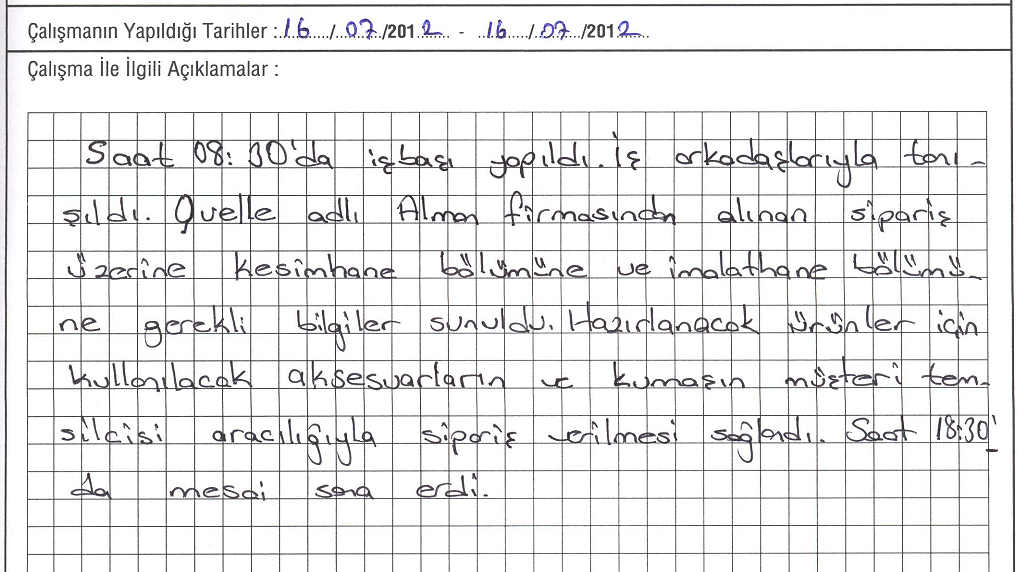 Çalışmanın Yapıldığı Tarihler : 16..../..07../2012... - ..16..../..07../2012..
Çalışma İle İlgili Açıklamalar :
Saat 08:30'da işbaşı yapıldı. İş arkadaşlarıyla tanı-
şıldı. Quelle adlı Alman firmasından alınan sipariş
üzerine kesimhane bölümüne ve imalathane bölümü-
ne gerekli bilgiler sunuldu. Hazırlanacak ürünler için
kullanılacak aksesuarların ve kumaşın müşteri tem-
silcisi aracılığıyla sipariş verilmesi sağlandı. Saat 18:30'
da mesai sona erdi.